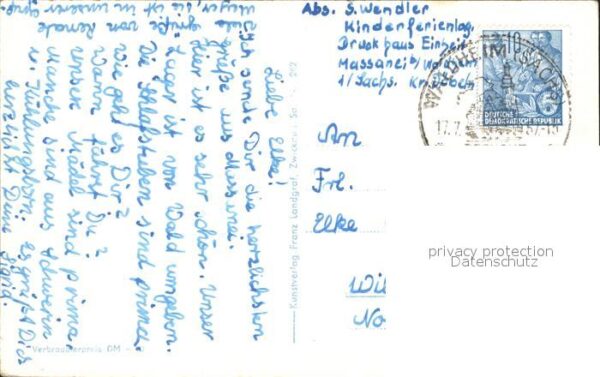 Liebe Elke!
Ich sende Dir die herzlichsten
Grüße aus Massanei.
Hier ist es sehr schön. Unser
Lager ist von Wald umgeben.
Die Schlafstuben sind prima.
Wie geht es Dir?
Wann fährst Du?
Unsere Mädel sind prima.
Manche sind aus Schwerin
u. Es grüßt Dich
herzlichst Deine
viele Grüße von Renate
die ist in unserer
Abs. S. Wendler
Kinderferienlag.
Druckhaus Einheit
Massanei b/Waldheim
1/Sachs. Kr. Döbeln
WALDHEIM (SACHS)
17.7. 57-15
10
DEUTSCHE
DEMOKRATISCHE REPUBLIK
An
Frl.
Elke
Wil
No
privacy protection
Datenschutz
Kunstverlag Franz Landgraf, Zwickau, Sa
Verbraucherpreis DM